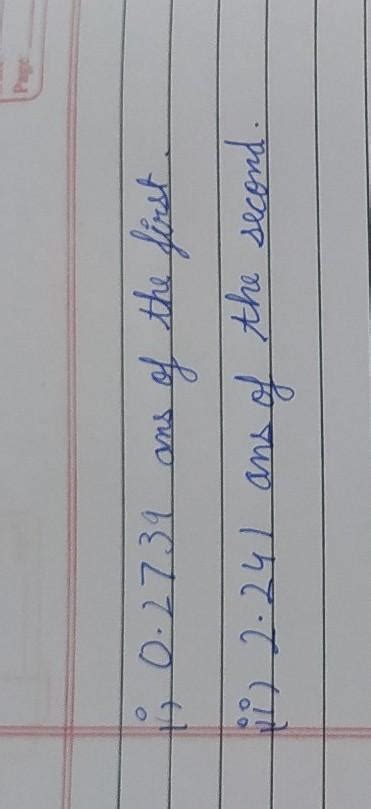 Page
i) 0.2739 ans of the first.
ii) 2.241 ans of the second.